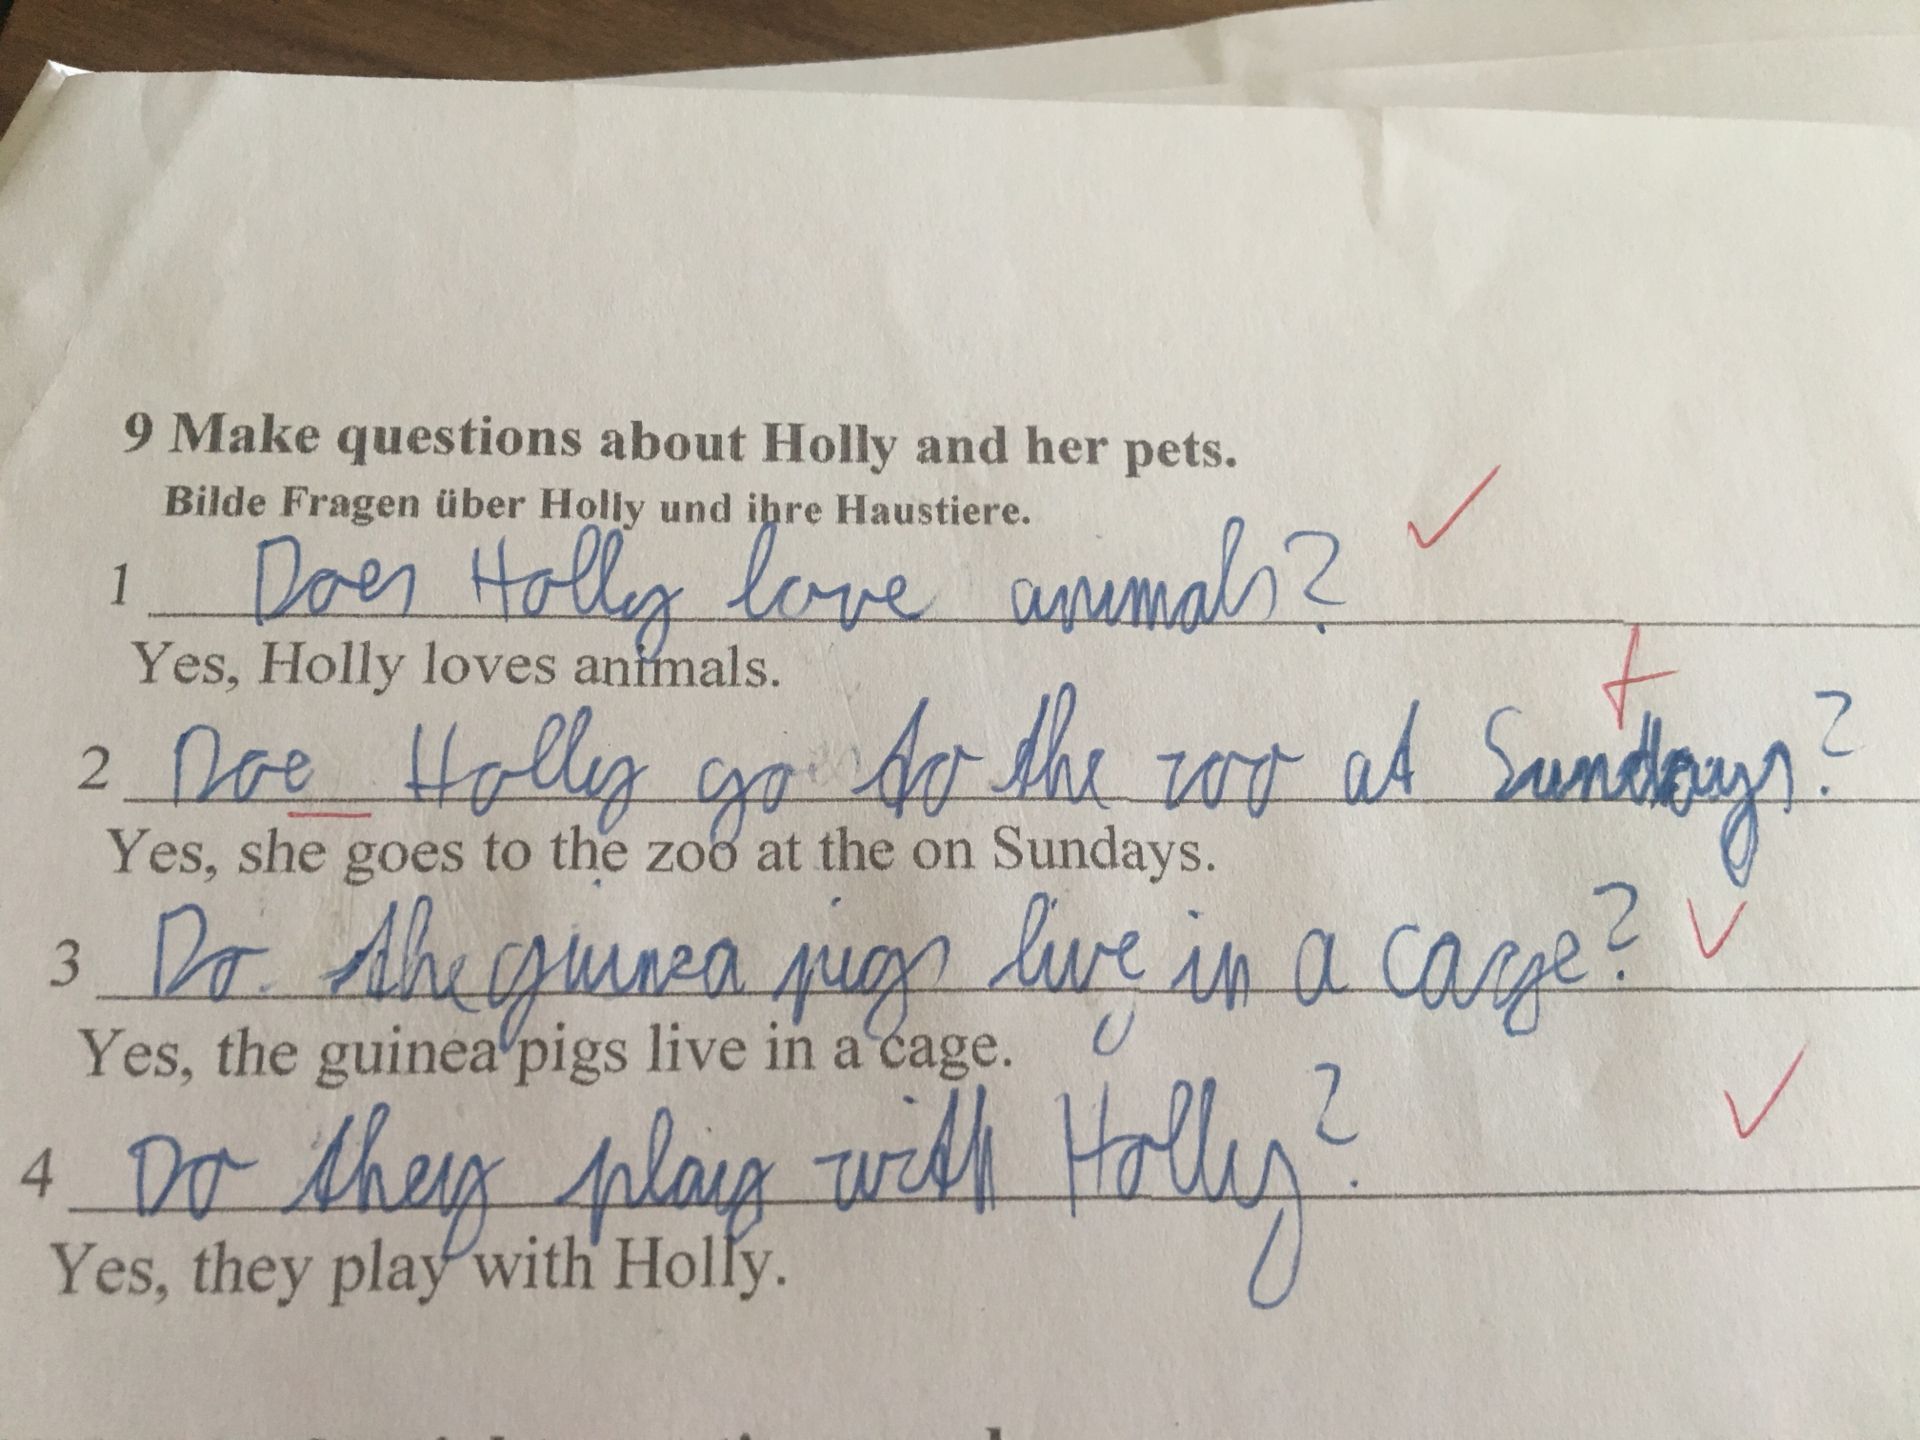 9 Make questions about Holly and her pets.
Bilde Fragen über Holly und ihre Haustiere.
1 Does Holly love animals?
Yes, Holly loves animals.
2 Doe Holly go to the zoo at Sundays?
Yes, she goes to the zoo at the on Sundays.
3 Do the guinea pigs live in a cage?
Yes, the guinea pigs live in a cage.
4 Do they play with Holly?
Yes, they play with Holly.